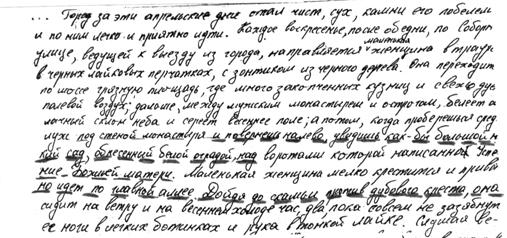 ... Город за эти апрельские дни стал чист, сух, камни его побелели
и по ним легко и приятно идти. Каждое воскресенье, после обедни, по Соборн
улице, ведущей к выезду из города, направляется маленькая женщина в трауре
в черных лайковых перчатках, с зонтиком из черного дерева. Она переходит
по шоссе грязную площадь, где много закопченных кузниц и свежо дует
полевой воздух: дальше, между мужским монастырем и острогом, белеет о
лачный склон неба и сереет весеннее поле; а потом, когда проберешься сред
лужи под стеной монастыря и повернешь налево, увидишь как-бы большой н
кий сад, обнесенный белой оградой, над воротами которой написано Успе
ние Божией матери. Маленькая женщина мелко крестится и привыч
но идет по главной аллее. Дойдя до скамьи против дубового креста, она
сидит на ветру и на весеннем холоде час, два, пока совсем не зазябнут
ее ноги в легких ботинках и рука в тонкой лайке. Слушая Ве-